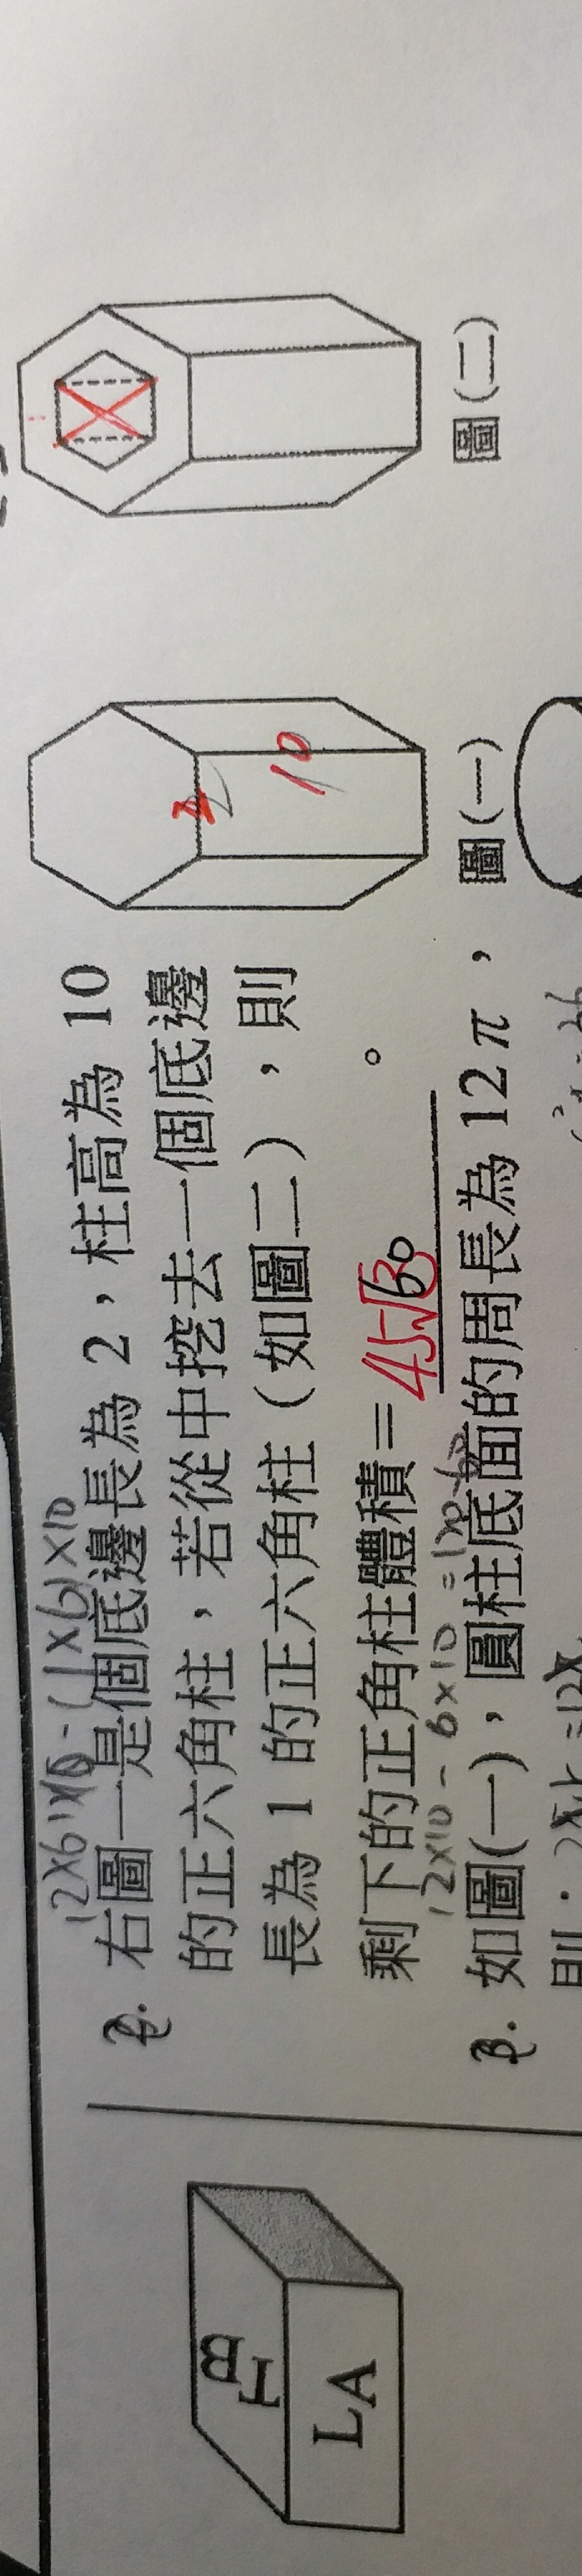 12×6×10-(1×6)×10
2. 右圖一是個底邊長為 2，柱高為 10
的正六角柱，若從中挖去一個底邊
長為 1 的正六角柱（如圖二），則
剩下的正角柱體積＝45√3 60 。
12×10-6×10=120-60
3. 如圖(一)，圓柱底面的周長為 12π，
則：
2
10
圖(一)
圖(二)
TB
LA